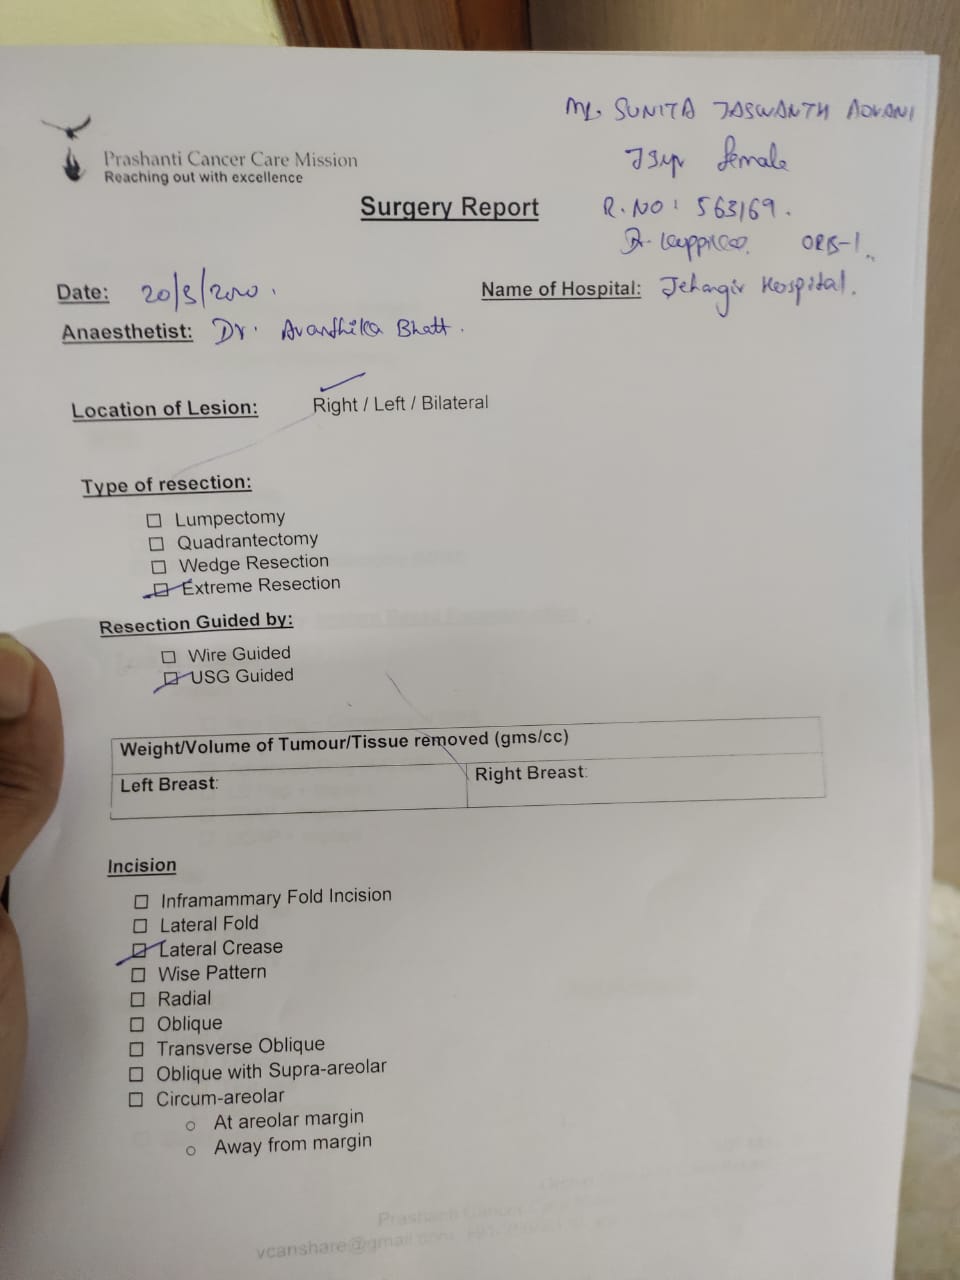 Ms. SUNITA JASWANTH ADVANI
73yr female
Prashanti Cancer Care Mission
Reaching out with excellence
Surgery Report
R.NO: 563169.
Dr. ORB-1
Date: 20/3/2020.
Name of Hospital: Jehangir Hospital.
Anaesthetist: Dr. Avanthika Bhatt.
Location of Lesion: Right / Left / Bilateral
Type of resection:
☐ Lumpectomy
☐ Quadrantectomy
☐ Wedge Resection
☑ Extreme Resection
Resection Guided by:
☐ Wire Guided
☑ USG Guided
Weight/Volume of Tumour/Tissue removed (gms/cc)
Left Breast: Right Breast:
Incision
☐ Inframammary Fold Incision
☐ Lateral Fold
☑ Lateral Crease
☐ Wise Pattern
☐ Radial
☐ Oblique
☐ Transverse Oblique
☐ Oblique with Supra-areolar
☐ Circum-areolar
o At areolar margin
o Away from margin
Prashanti Cancer
vcanshare@gmail.com